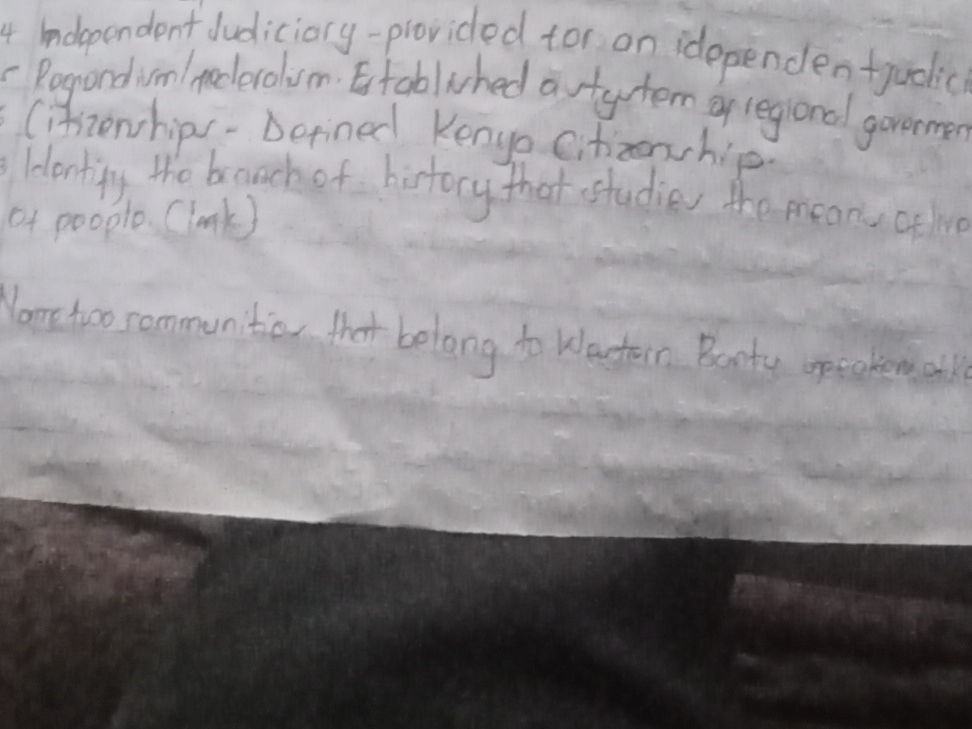 4 Independent Judiciary - provided for an idependent judici
Estabilished a system of regional goverment
Citizenships - Defined Kenya Citizenship.
Identify the branch of history that studies the means of live
of people. (1mk)
Name two communities that belong to Western Banty speakers of